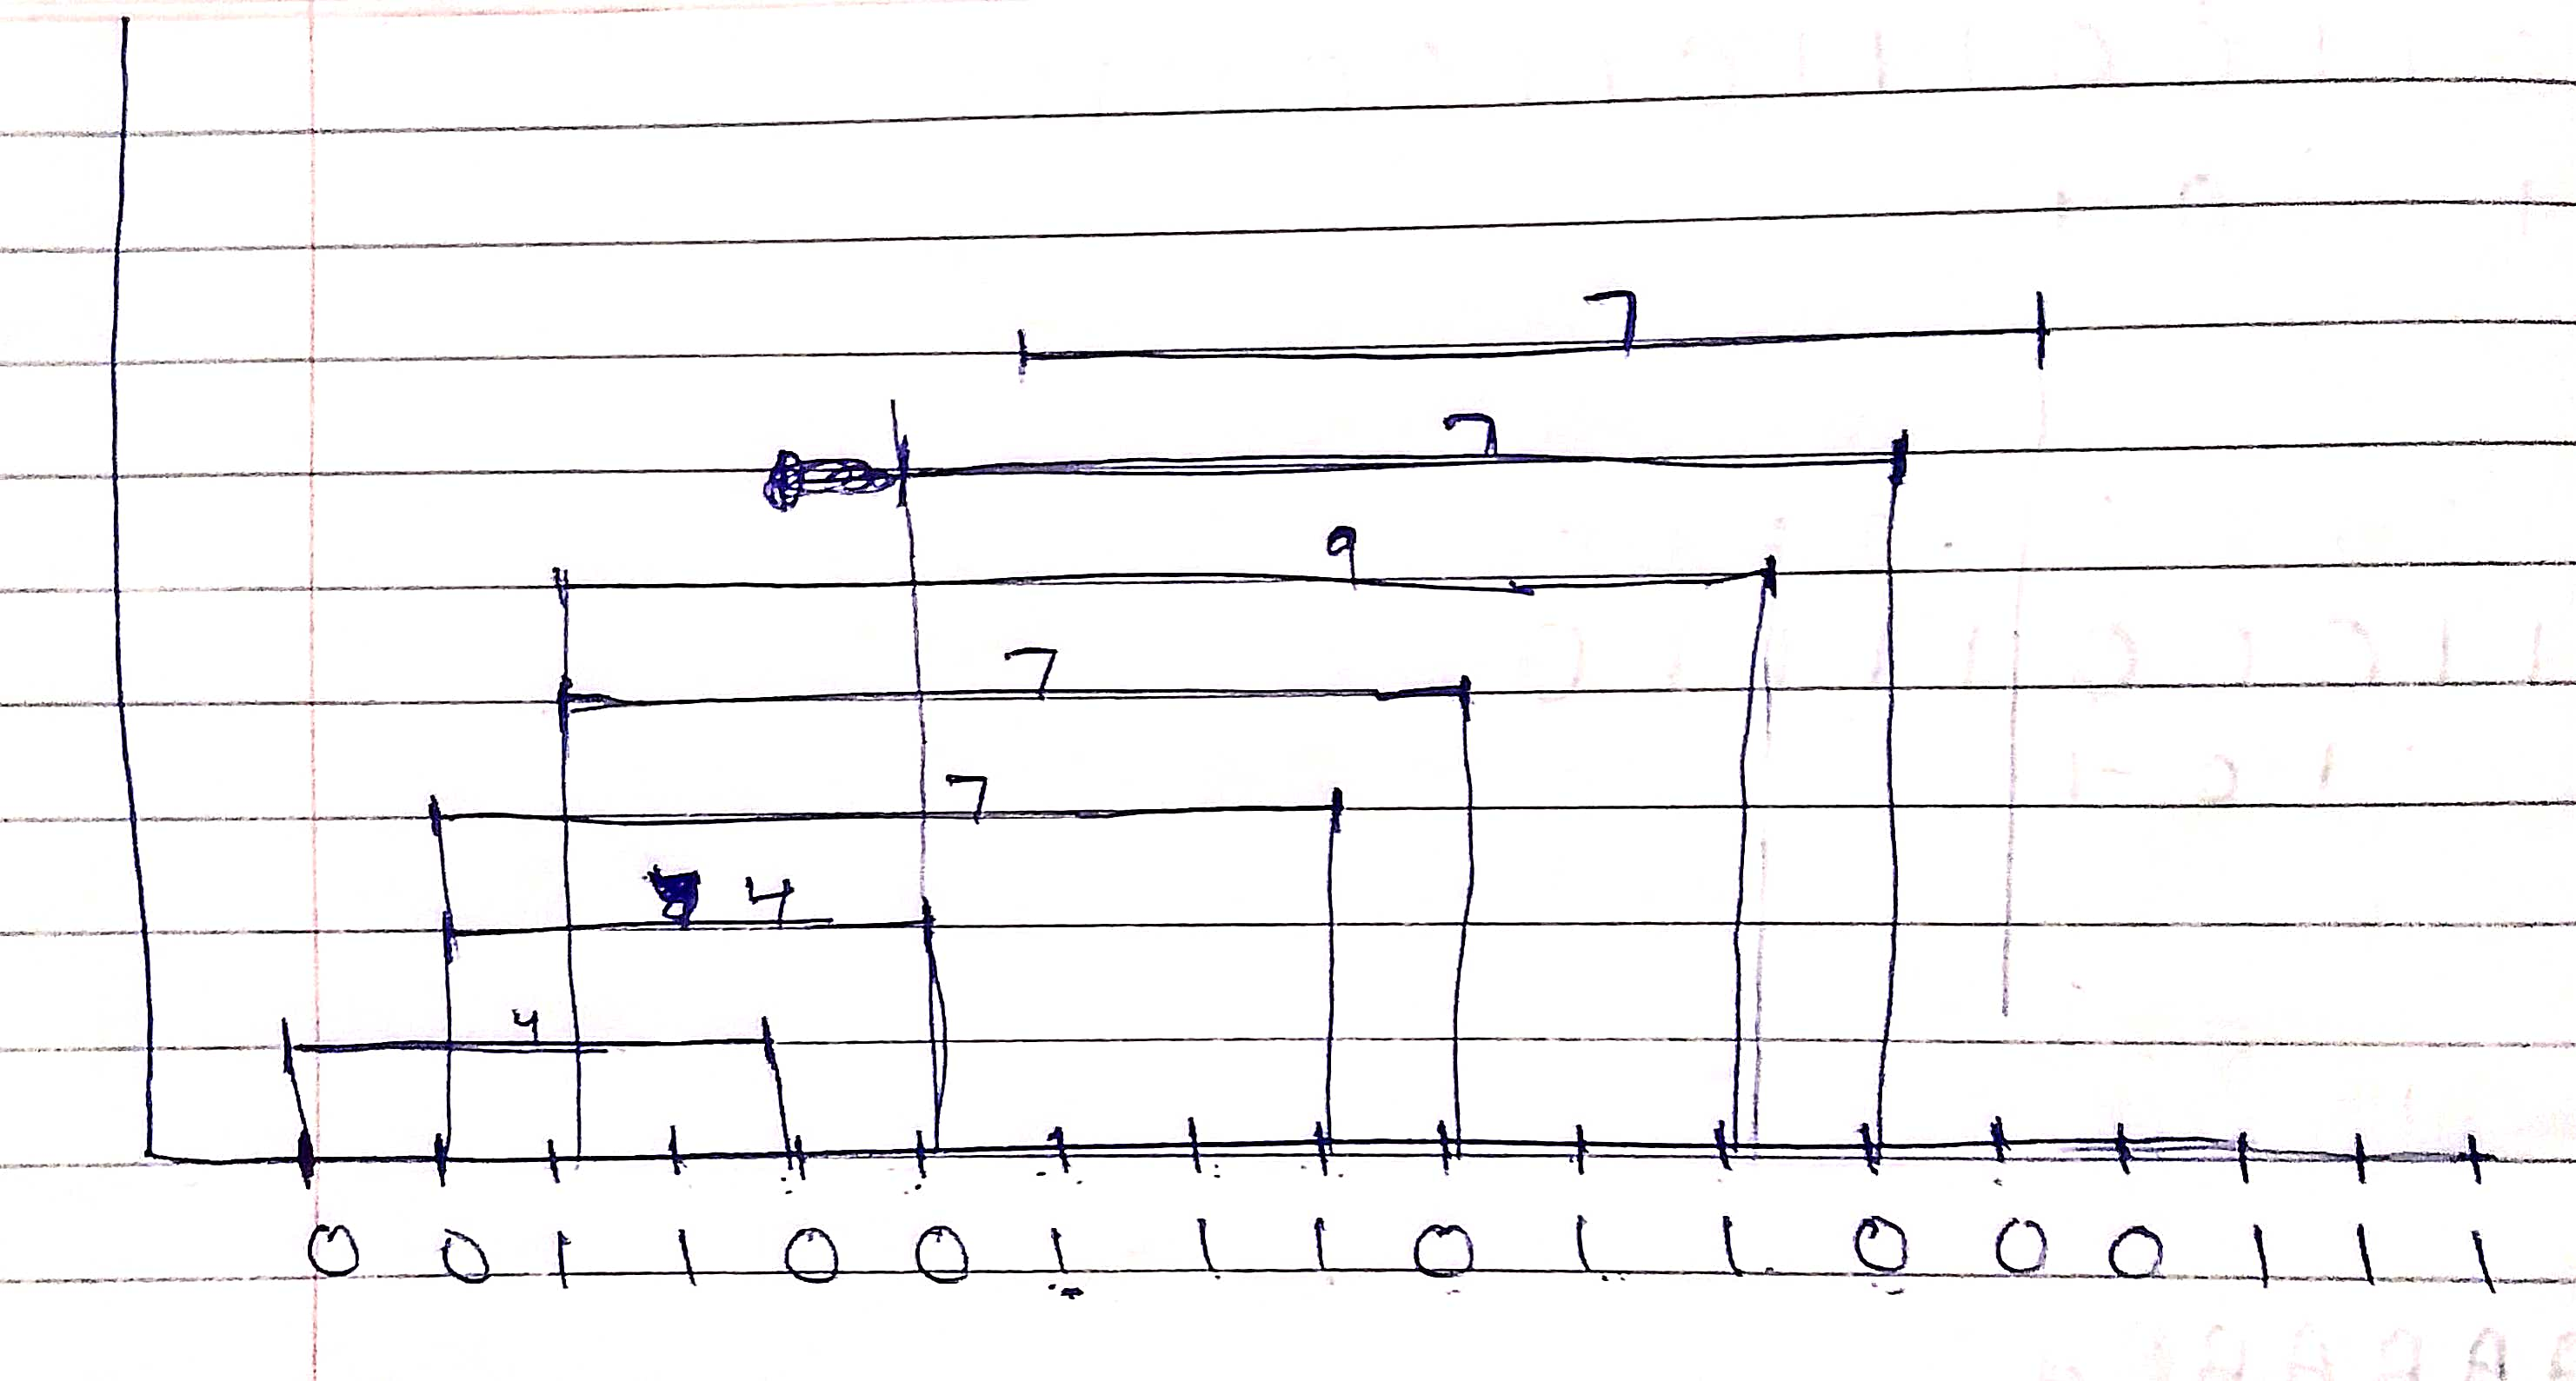 7
7
9
7
7
4
4
0 0 1 1 0 0 1 1 1 0 1 1 0 0 0 1 1 1